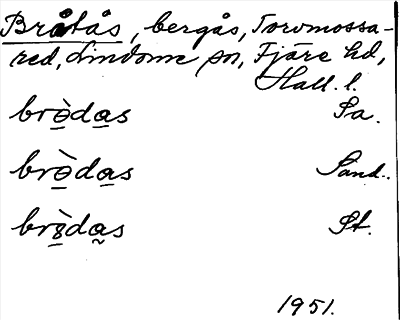 Bråtås, bergås, Torvmossa-
red, Lindome sn, Fjäre hd,
Hall. l.
brə̀das Sa.
brə̀das Sand..
brə̀das St.
1951.